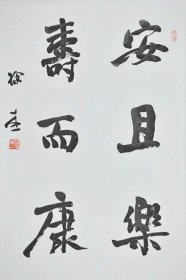 安且樂
壽而康
徐